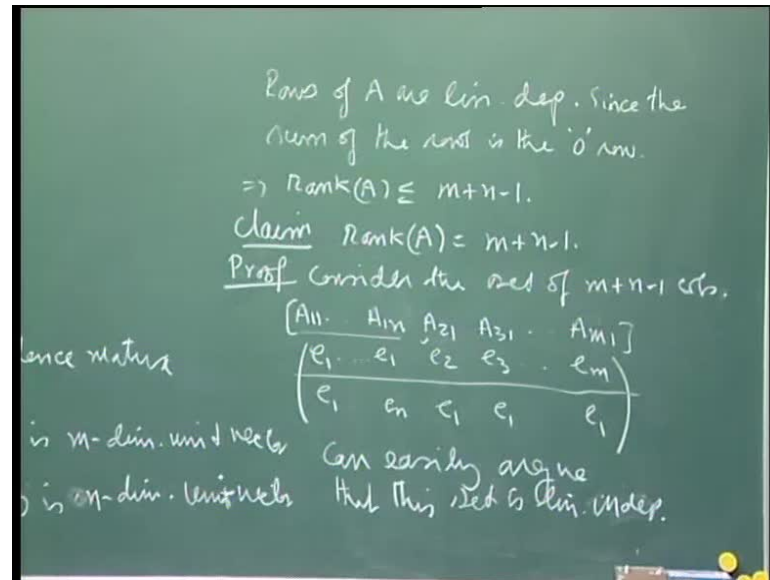 Rows of A are lin. dep. Since the
sum of the rows is the 'o' row.
=> Rank(A) ≤ m+n-1.
Claim Rank(A) = m+n-1.
Proof Consider the set of m+n-1 cols.
[A11 .. A1n A21 A31 .. Am1]
(e1 ... e1 e2 e3 .. em)
(e1 en e1 e1 e1)
ence matrix
is m-dim. unit vector
can easily argue
is n-dim. unit vector
that this set is lin. indep.